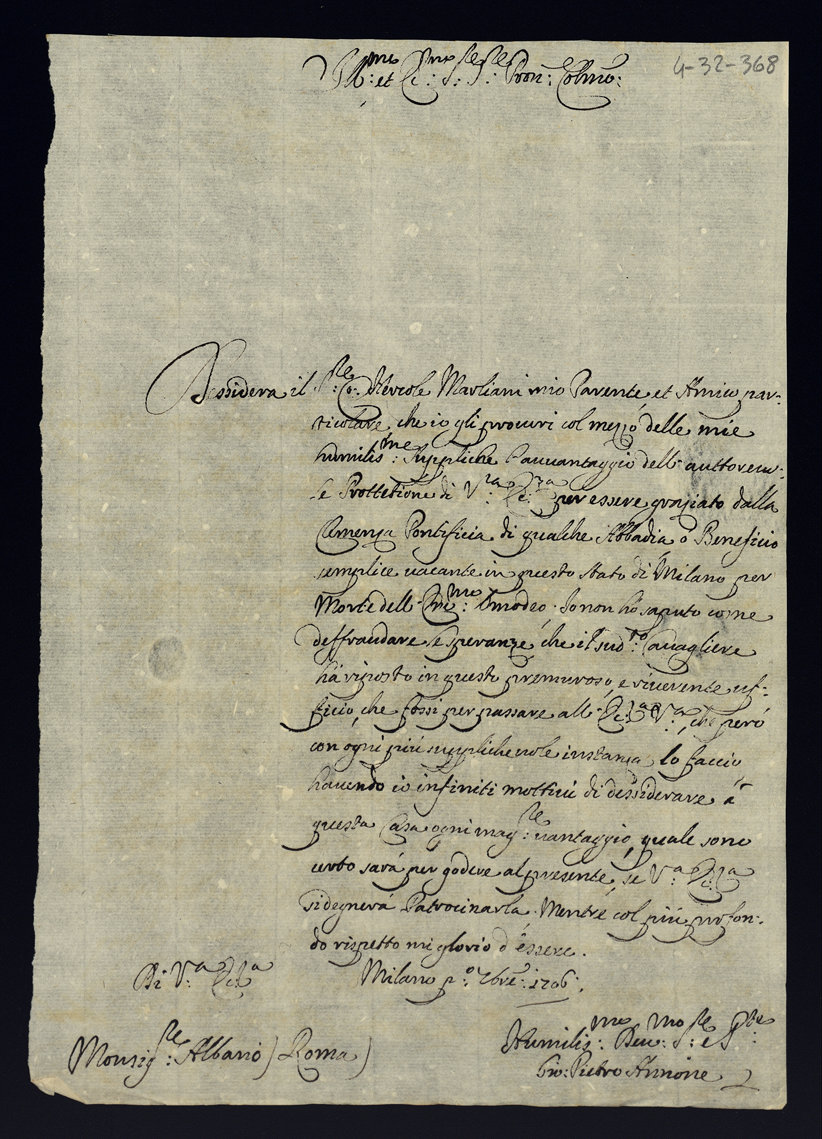 4-32-368
Ill:mo et Ecc:mo S:re S:re Pron: Colmo:
Dessidera il S:re Co: Hercole Marliani mio Parente, et Amico par-
ticolare, che io gli procuri col mezzo delle mie
humilis:me suppliche l'avvantaggio dell'auttorevo-
le Prottetione di V:ra Ecc:za per essere graziato dalla
Clemenza Pontificia di qualche Abbadia o Beneficio
semplice vacante in questo stato di Milano per
Morte dell' Em:mo Omodeo. Io non hò saputo come
deffraudare le speranze, che il sud:to Cavagliere
hà riposto in questo premuroso, e riverente uf-
ficio, che fossi per passare all' Ecc:za V:ra, che però
con ogni più supplichevole instanza lo faccio
havendo io infiniti mottivi di dessiderare à
questa Casa ogni mag:re vantaggio, quale sono
certo sarà per godere al presente, se V:ra Ecc:za
si degnerà Patrocinarla. Mentre col più profon-
do rispetto mi glorio d'essere.
Di V:ra Ecc:za
Milano p:o 7bre: 1706:
Monsig:re Albano) Roma)
Humilis:mo Dev:mo S:re e
Gio: Pietro Annone